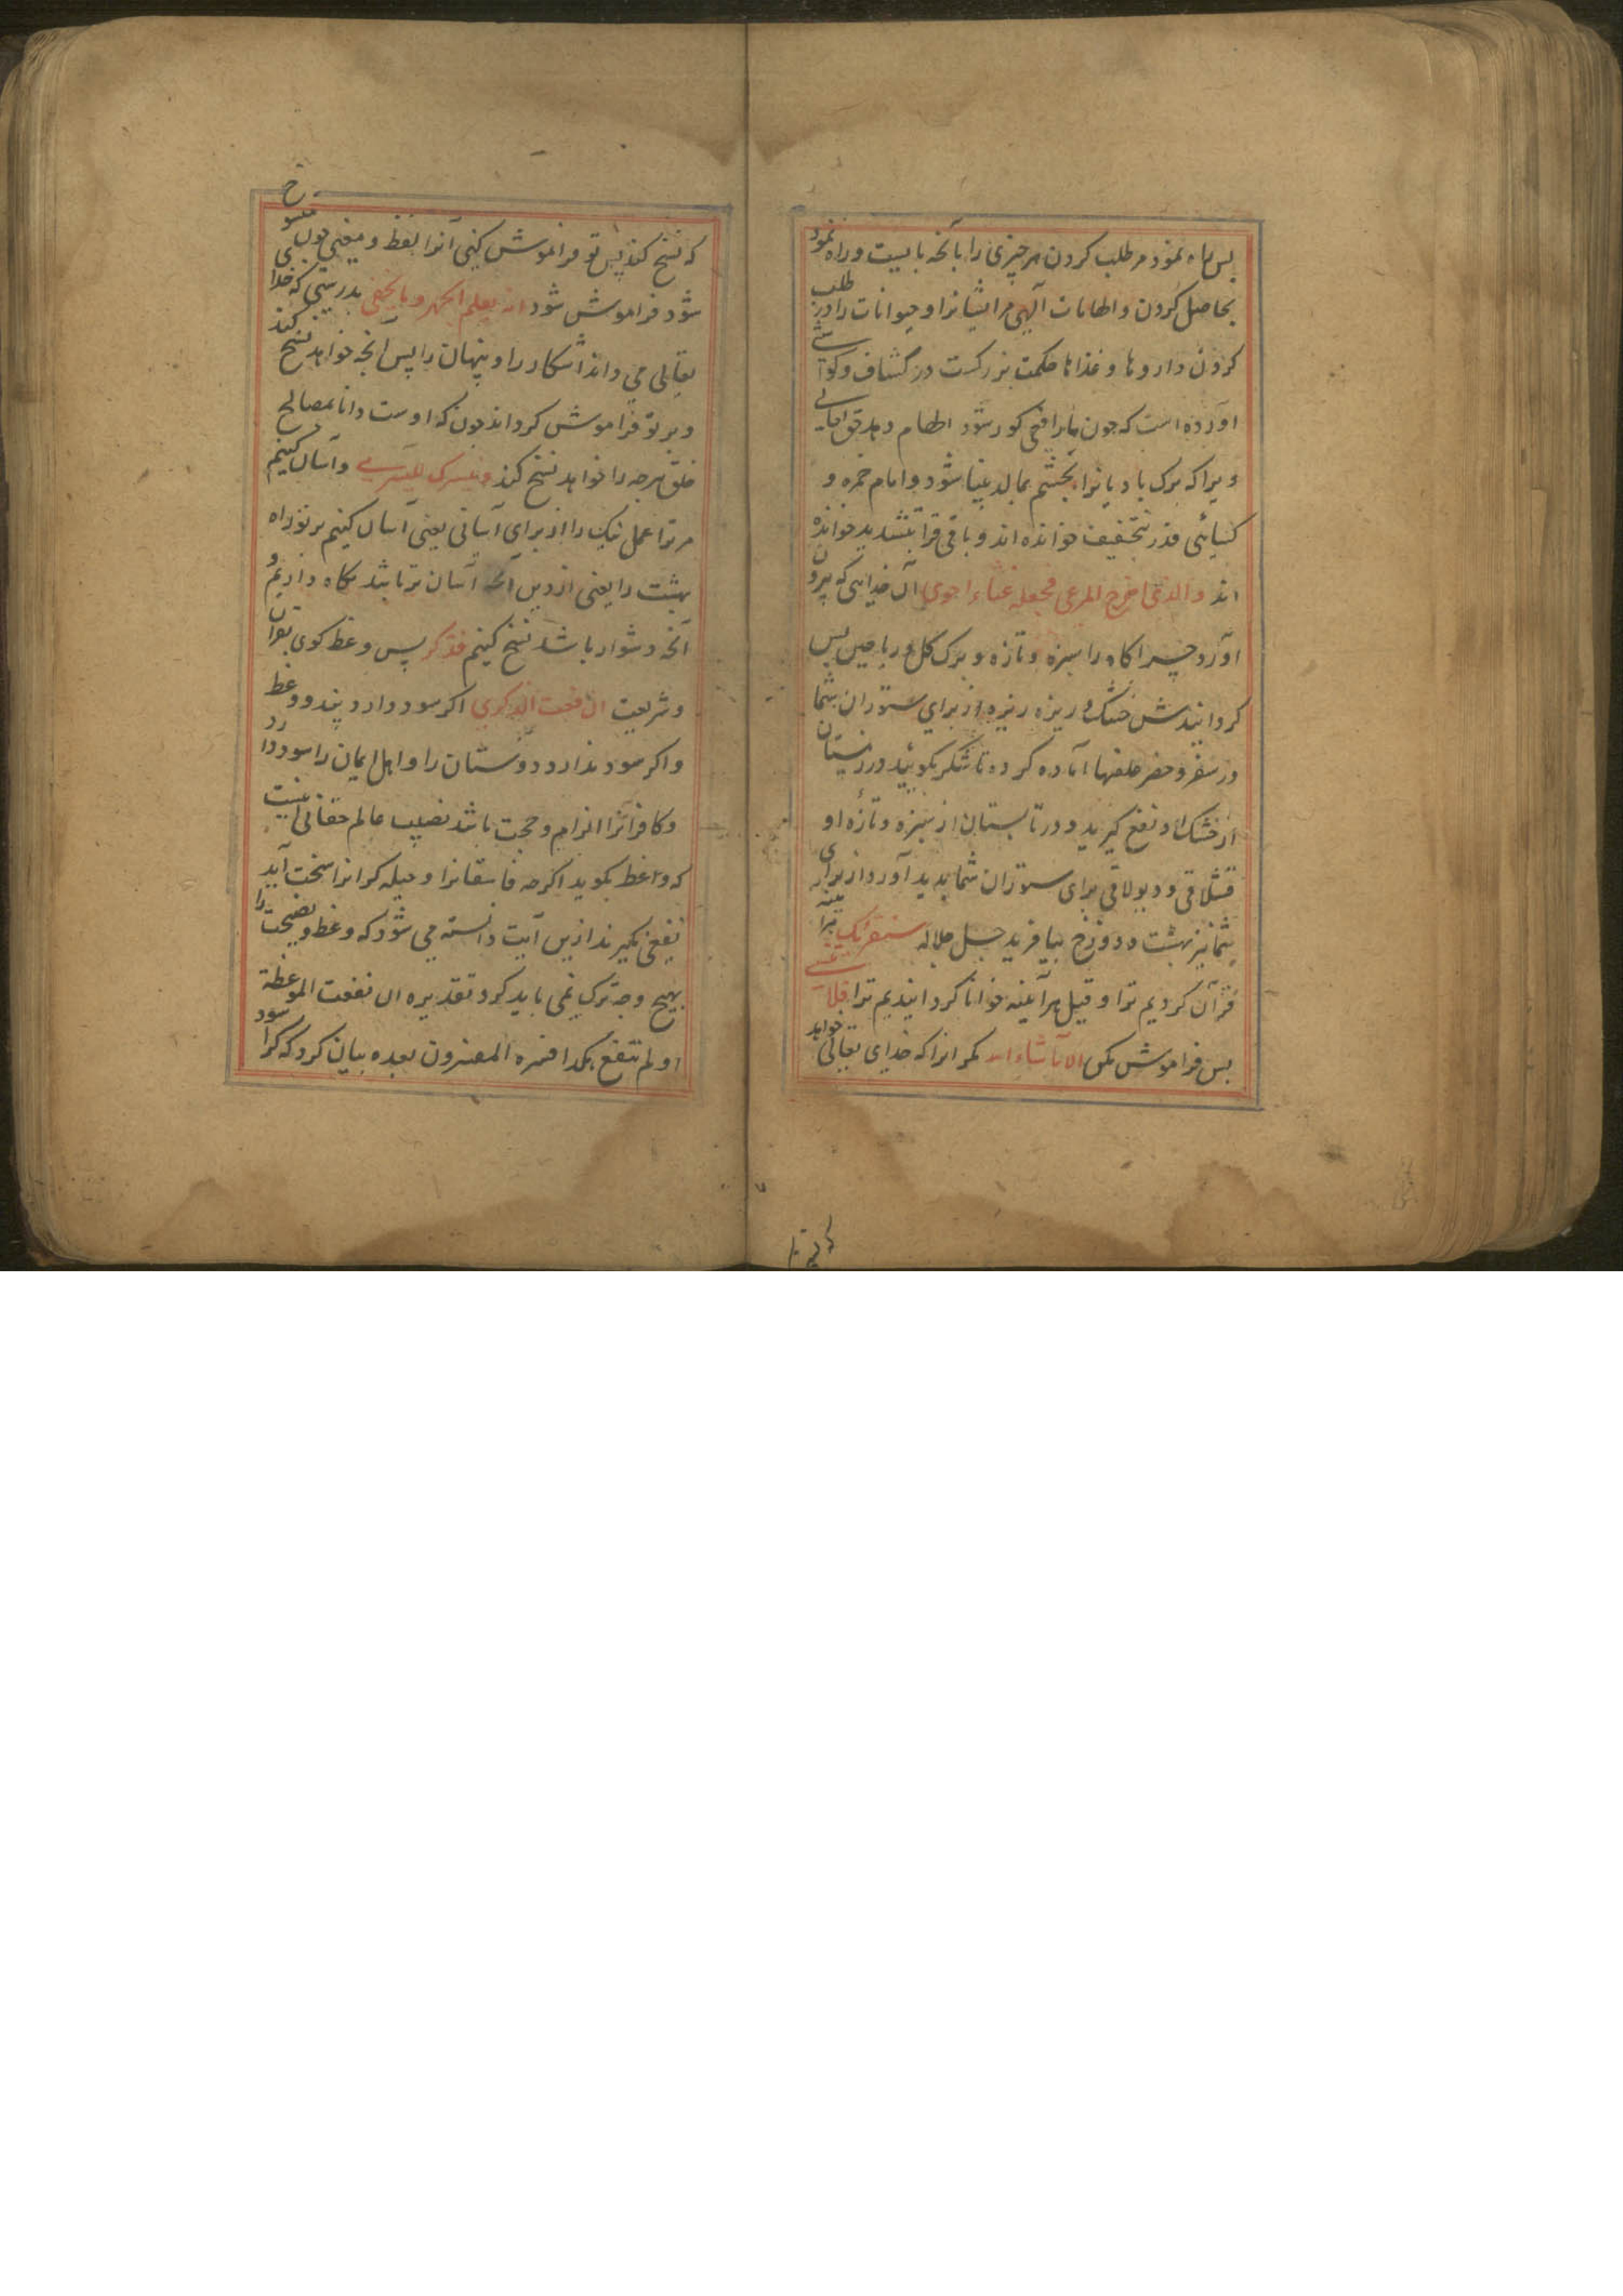 پس راه نمود مر طلب کردن هر چیزی را بآنچه بایست و راه نمود
بحاصل کردن و الهامات آلهی مر ایشانرا و حیوانات را در طلب
کردن داروها و غذاها حکمت بزرکست در کشاف و کواشی
اورده است که چون مار افعی کور شود الهام دهد حق تعالی
ویرا که برک بادیانرا بچشم بمالد بینا شود و امام حمزه و
کسایی قدر بتخفیف خوانده اند و باقی قرا بتشدید خوانده
اند والذی اخرج المرعی فجعله غثاء احوی آن خدایی که بیرون
اورد چراکاه را سبزه و تازه و برک کل و ریاحین پس
کردانیدش خشک و ریزه ریزه از برای ستوران شما
در سفر و حضر علفها آماده کرده تا شکر بکویید در زمستان
از خشک او نفع کیرید و در تابستان از سبزه و تازه او
قشلاقی و یولاقی برای ستوران شما پدید آورد از برای
شما نیز بهشت و دوزخ بیافرید جل جلاله سنقرئک هر آینه
قرآن کردیم ترا و قیل هرآینه خوانا کردانیدیم ترا فلا تنسی
پس فراموش مکن الا ما شاء الله مکر انرا که خدای تعالی خواهد
که نسخ کند پس تو فراموش کنی آنرا لفظ و معنی چون منسوخ
شود فراموش شود انه یعلم الجهر وما یخفی بدرستی که خدای
تعالی می داند آشکارا و پنهان را پس آنچه خواهد نسخ کند
و بر تو فراموش کرداند چون که اوست دانا بمصالح
خلق هرچه را خواهد نسخ کند ونیسرک للیسری و آسان کنیم
مر ترا عمل نیک را از برای آسانی یعنی آسان کنیم بر تو راه
بهشت را یعنی از دین آنچه آسان تر باشد نکاه داریم و
آنچه دشوار باشد نسخ کنیم فذکر پس وعظ کوی بقرآن
و شریعت ان نفعت الذکری اکر سود دارد پند و وعظ
و اکر سود ندارد دوستان را و اهل ایمان را سود دارد
و کافرانرا الزام و حجت باشد نصیب عالم حقانی اینست
که واعظ بکوید اکرچه فاسقانرا و حیله کرانرا سخت آید
نفعی نکیرند ازین آیت دانسته می شود که وعظ و نصیحت را
بهیچ وجه ترک نمی باید کرد تقدیره ان نفعت الموعظة
او لم تنفع هکذا فسره المفسرون بعده بیان کرد که کرا سود